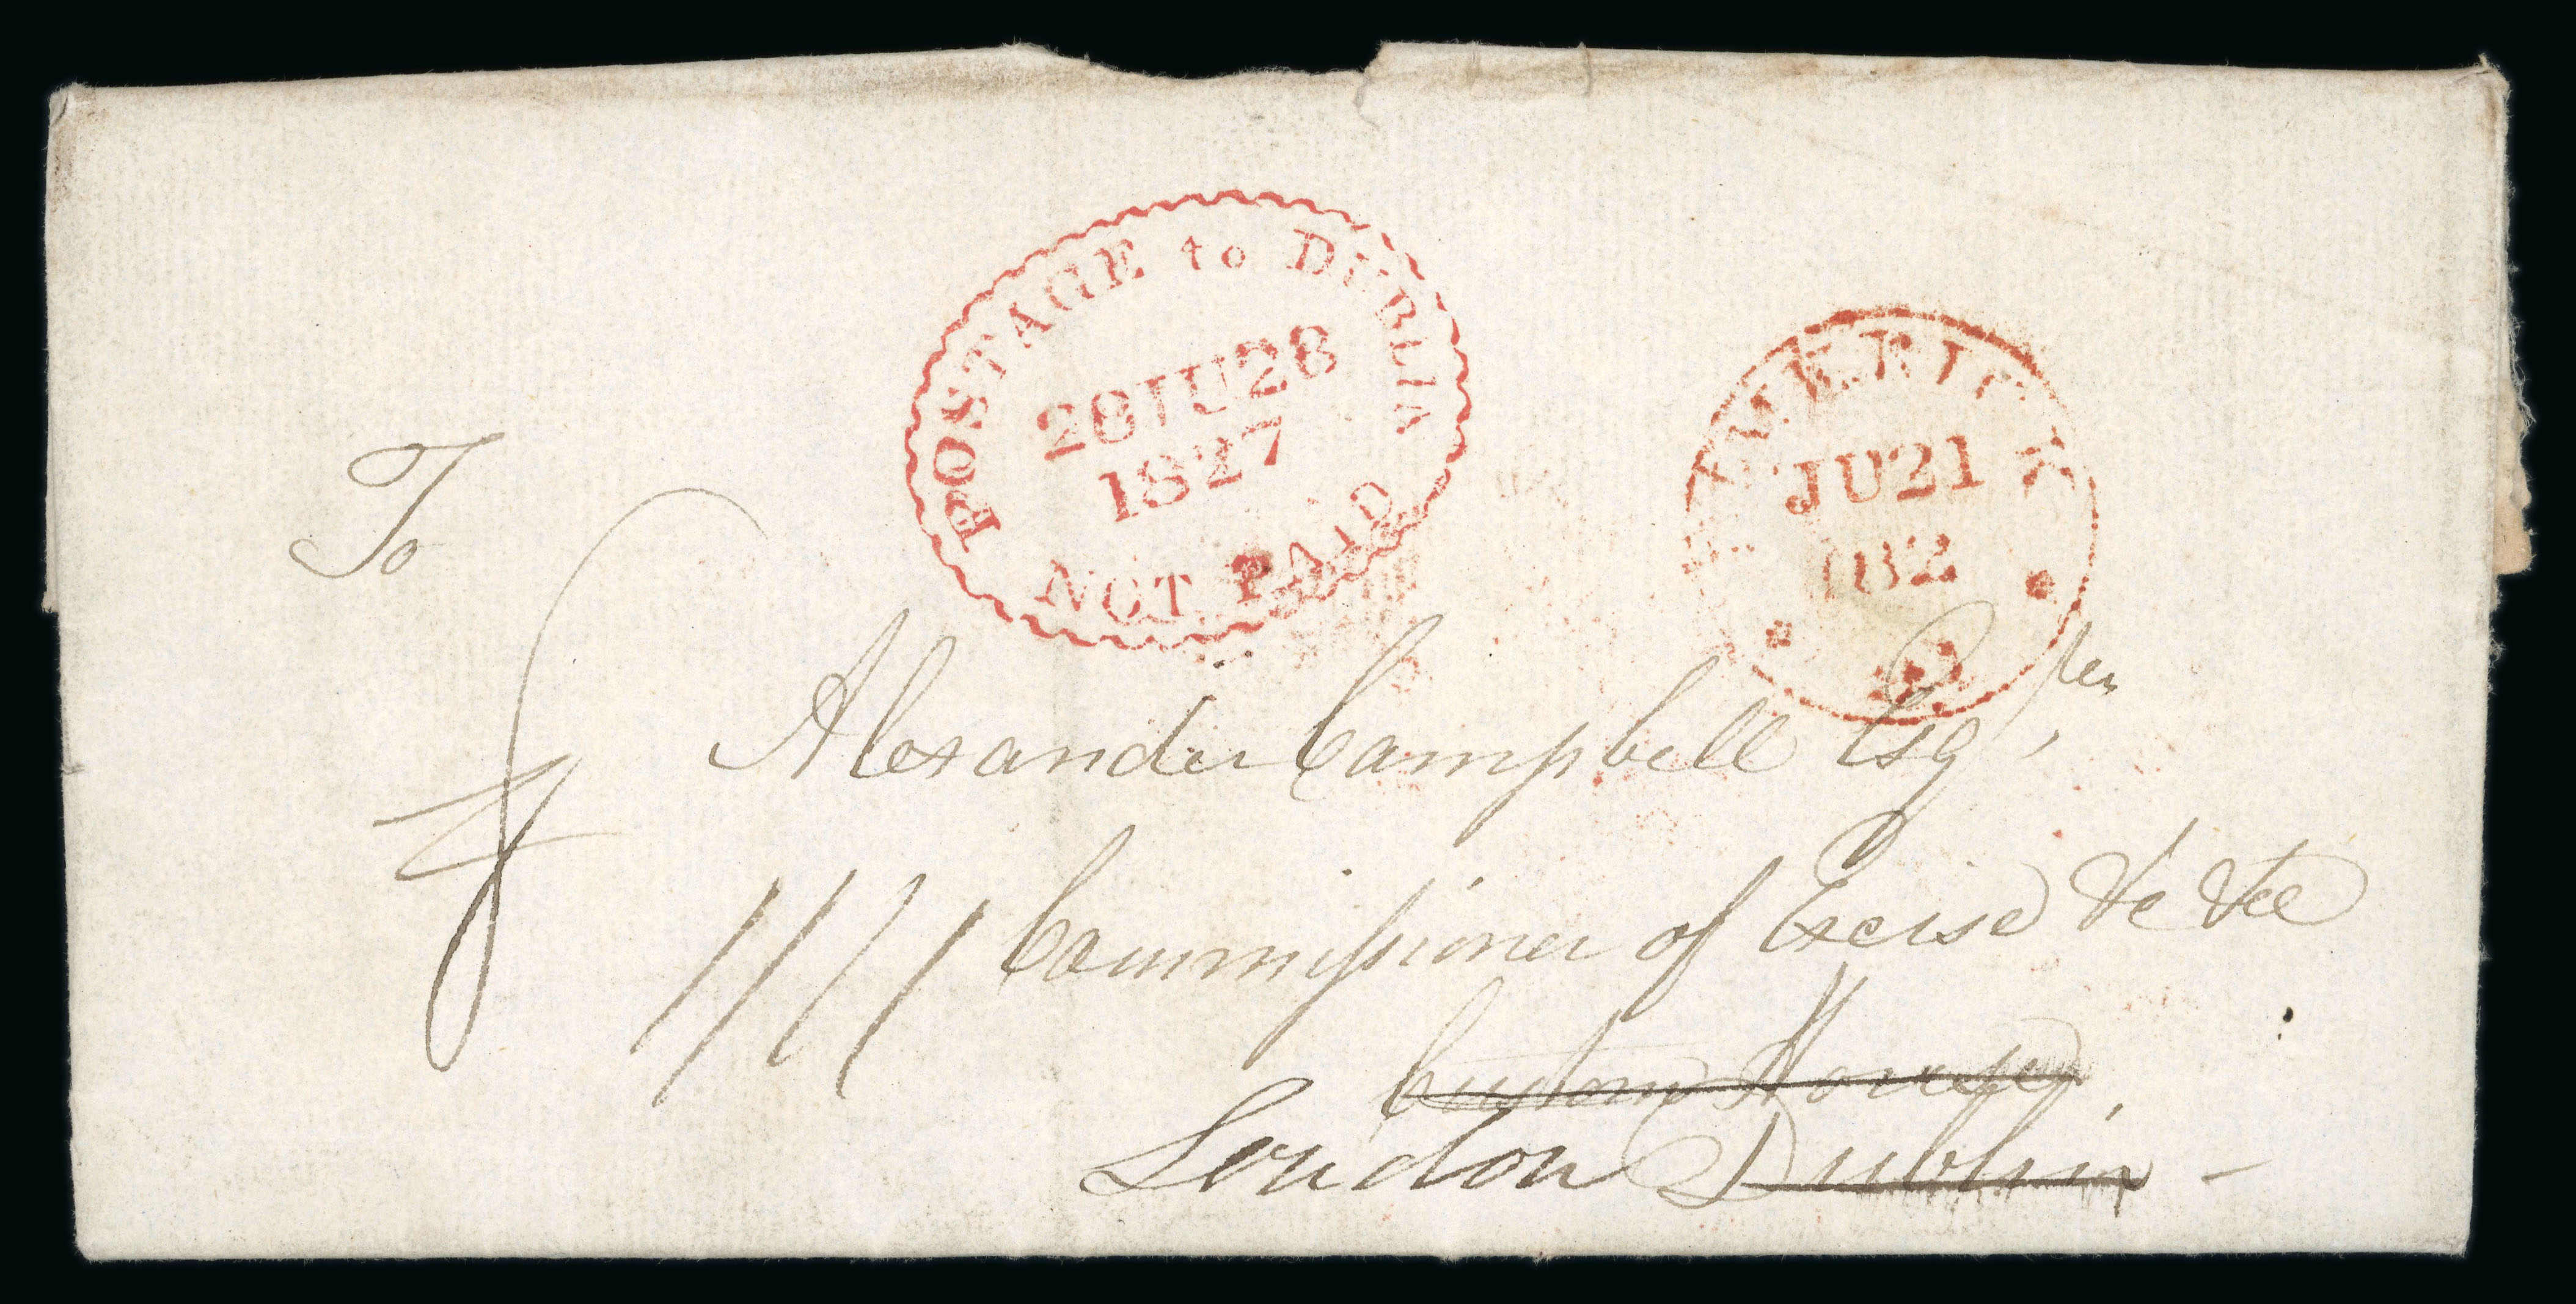 POSTAGE to DUBLIN
28 JU 28
1827
NOT PAID
AMERICA
JU 21
182
To
Alexander Campbell Esqr,
Commissioner of Excise &c &ce
Custom House,
London Dublin -